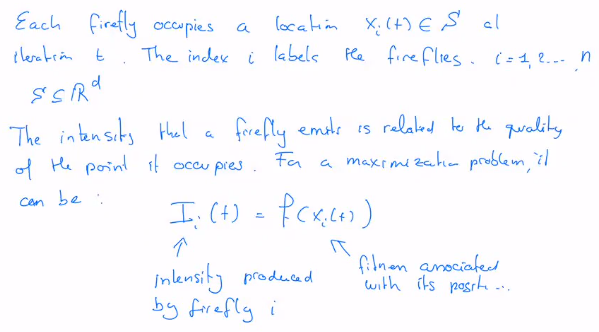 Each firefly occupies a location x_i(t) ∈ S at
iteration t. The index i labels the fireflies. i=1,2... n
S ⊆ ℝ^d
The intensity that a firefly emits is related to the quality
of the point it occupies. For a maximization problem, it
can be :
I_i(t) = f(x_i(t))
intensity produced
by firefly i
fitness associated
with its posit...